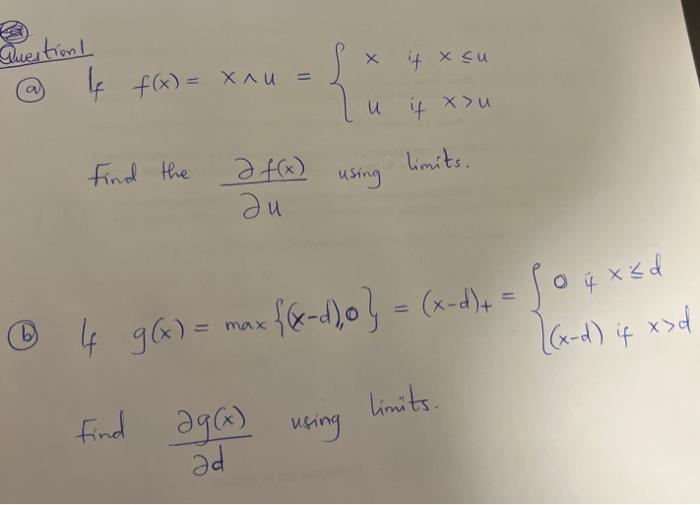 Question 1
(a) If f(x) = x ∧ u = { x if x ≤ u
u if x > u
Find the ∂f(x)/∂u using limits.
(b) If g(x) = max {(x-d), 0} = (x-d)+ = { 0 if x ≤ d
(x-d) if x > d
Find ∂g(x)/∂d using limits.